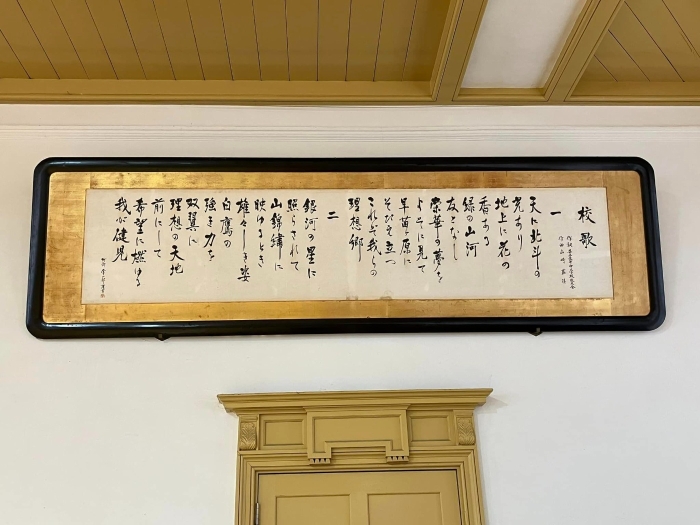 校歌
一
天に北斗の
光あり
地上に花の
香ある
緑の山河
友となし
栄華の夢を
よそに見て
早苗ヶ原に
そびえ立つ
これぞ我らの
理想郷
二
銀河の星に
照いされて
山錦繍に
映ゆるとき
雄々しき姿
白鷹の
強き力を
双翼に
理想の天地
前にして
希望に燃ゆる
我が健児